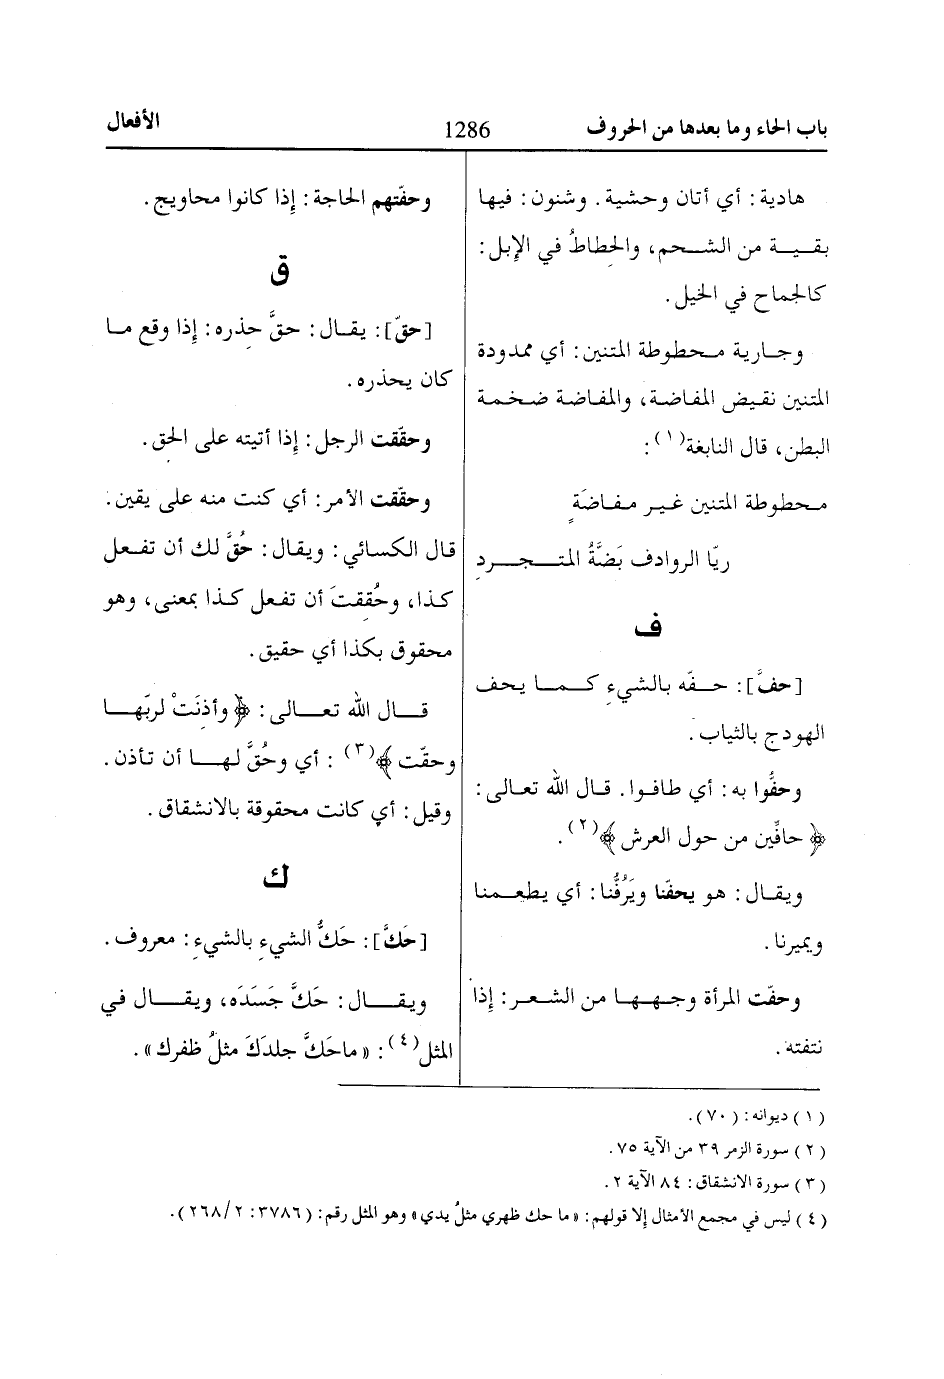 باب الحاء وما بعدها من الحروف
1286
الأفعال
هادية : أي أتان وحشية . وشنون : فيها
بقيـــة من الشـــحم، والحطاطُ في الإبل :
كالجماح في الخيل .
وجـارية محطوطة المتنين : أي ممدودة
المتنين نقيض المفاضة، والمفاضة ضخمة
البطن، قال النابغة(١) :
محطوطة المتنين غـيـر مـفـاضَةٍ
ريّا الروادف بَضَّةُ المتـــجـــردِ
ف
[حفَّ] : حـــفّه بالشيءِ كـــمـــا يحف
الهودج بالثياب .
وحفُّوا به : أي طافـوا . قـال الله تعـالى :
﴿ حافِّين من حول العرش ﴾(٢) .
ويقـال : هو يحفّنا ويَرُفُّنا : أي يطعـــمنا
ويميرنا .
وحفّت المرأة وجـهـهـا من الشـعـر : إذا
نتفته .
وحفّتهم الحاجة : إذا كانوا محاويج .
ق
[حقّ] : يقـال : حقَّ حِذره : إذا وقع مـا
كان يحذره .
وحقّقت الرجل : إذا أتيته على الحق .
وحقّقت الأمر : أي كنت منه على يقين .
قال الكسائي : ويقال : حُقَّ لك أن تفـعل
كـذا، وحُقِقتَ أن تفعل كـذا بمعنى، وهو
محقوق بكذا أي حقيق .
قـــال الله تعـــالى : ﴿ وأذنَتْ لربّهـــا
وحقّت ﴾(٣) : أي وحُقَّ لهـــا أن تأذن .
وقيل : أي كانت محقوقة بالانشقاق .
ك
[حَكَّ] : حَكُّ الشيءِ بالشيءِ : معروف .
ويقـــال : حَكَّ جَسَدَه، ويقـــال في
المثل(٤) : « ماحَكَّ جلدَكَ مثلُ ظفرك » .
(١) ديوانه : (٧٠) .
(٢) سورة الزمر ٣٩ من الآية ٧٥ .
(٣) سورة الانشقاق : ٨٤ الآية ٢ .
(٤) ليس في مجمع الأمثال إلا قولهم : « ما حك ظهري مثلُ يدي » وهو المثل رقم : (٣٧٨٦ : ٢/٢٦٨) .